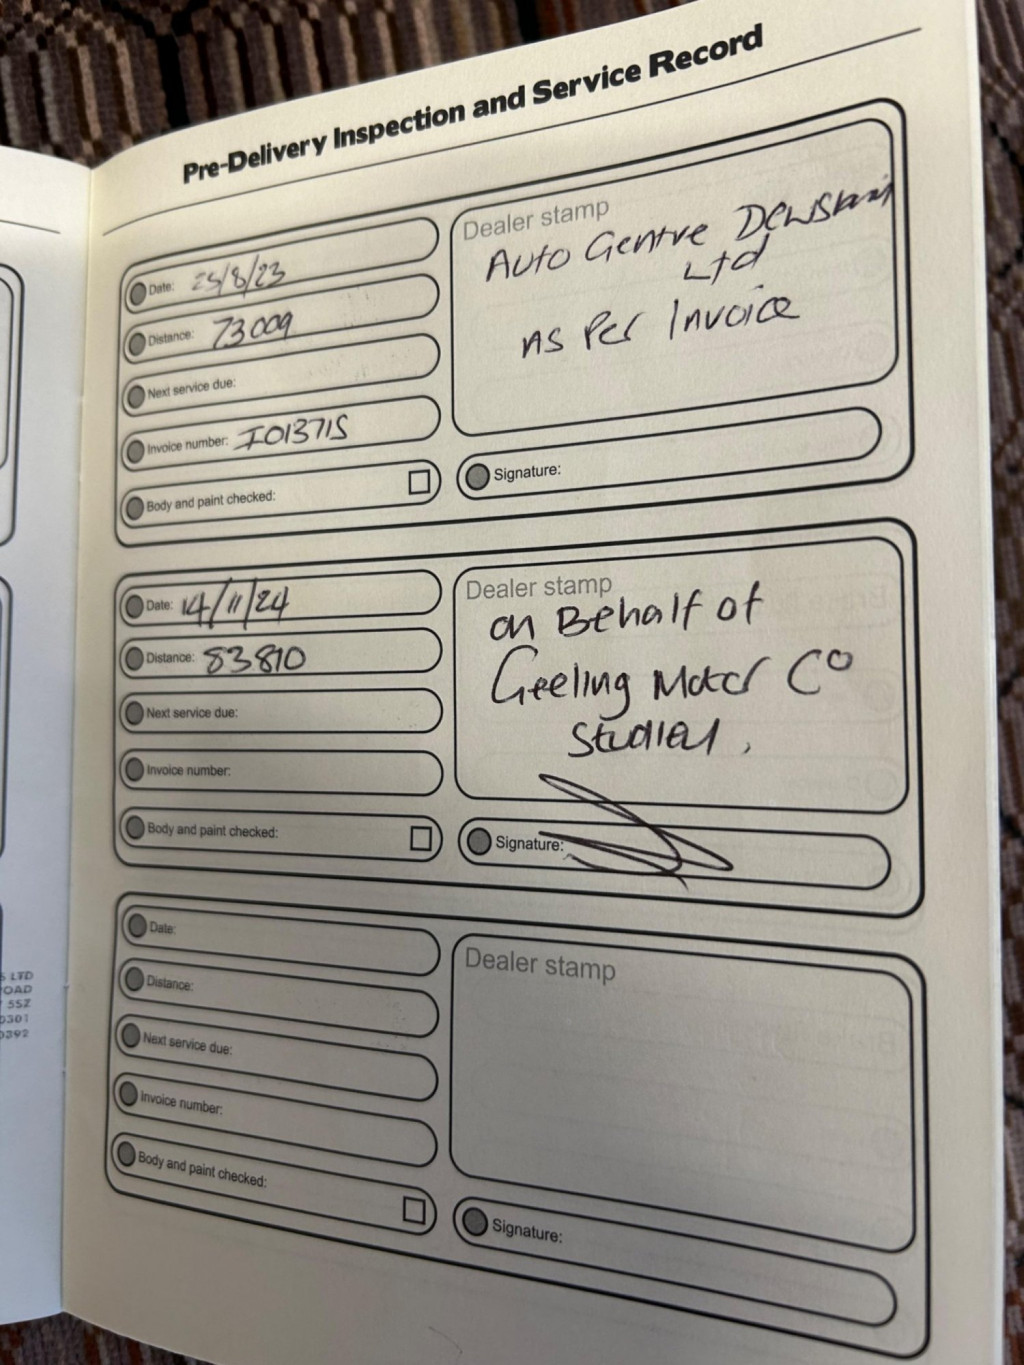 Pre-Delivery Inspection and Service Record
Date: 25/8/23
Distance: 73009
Next service due:
Invoice number: I013715
Body and paint checked:
Dealer stamp
Auto Centre
Ltd
as Per Invoice
Signature:
Date: 14/11/24
Distance: 83810
Next service due:
Invoice number:
Body and paint checked:
Dealer stamp
on Behalf of
Geeling Motor Co
Signature:
Date:
Distance:
Next service due:
Invoice number:
Body and paint checked:
Dealer stamp
Signature:
S LTD
OAD
5SZ
0301
0392